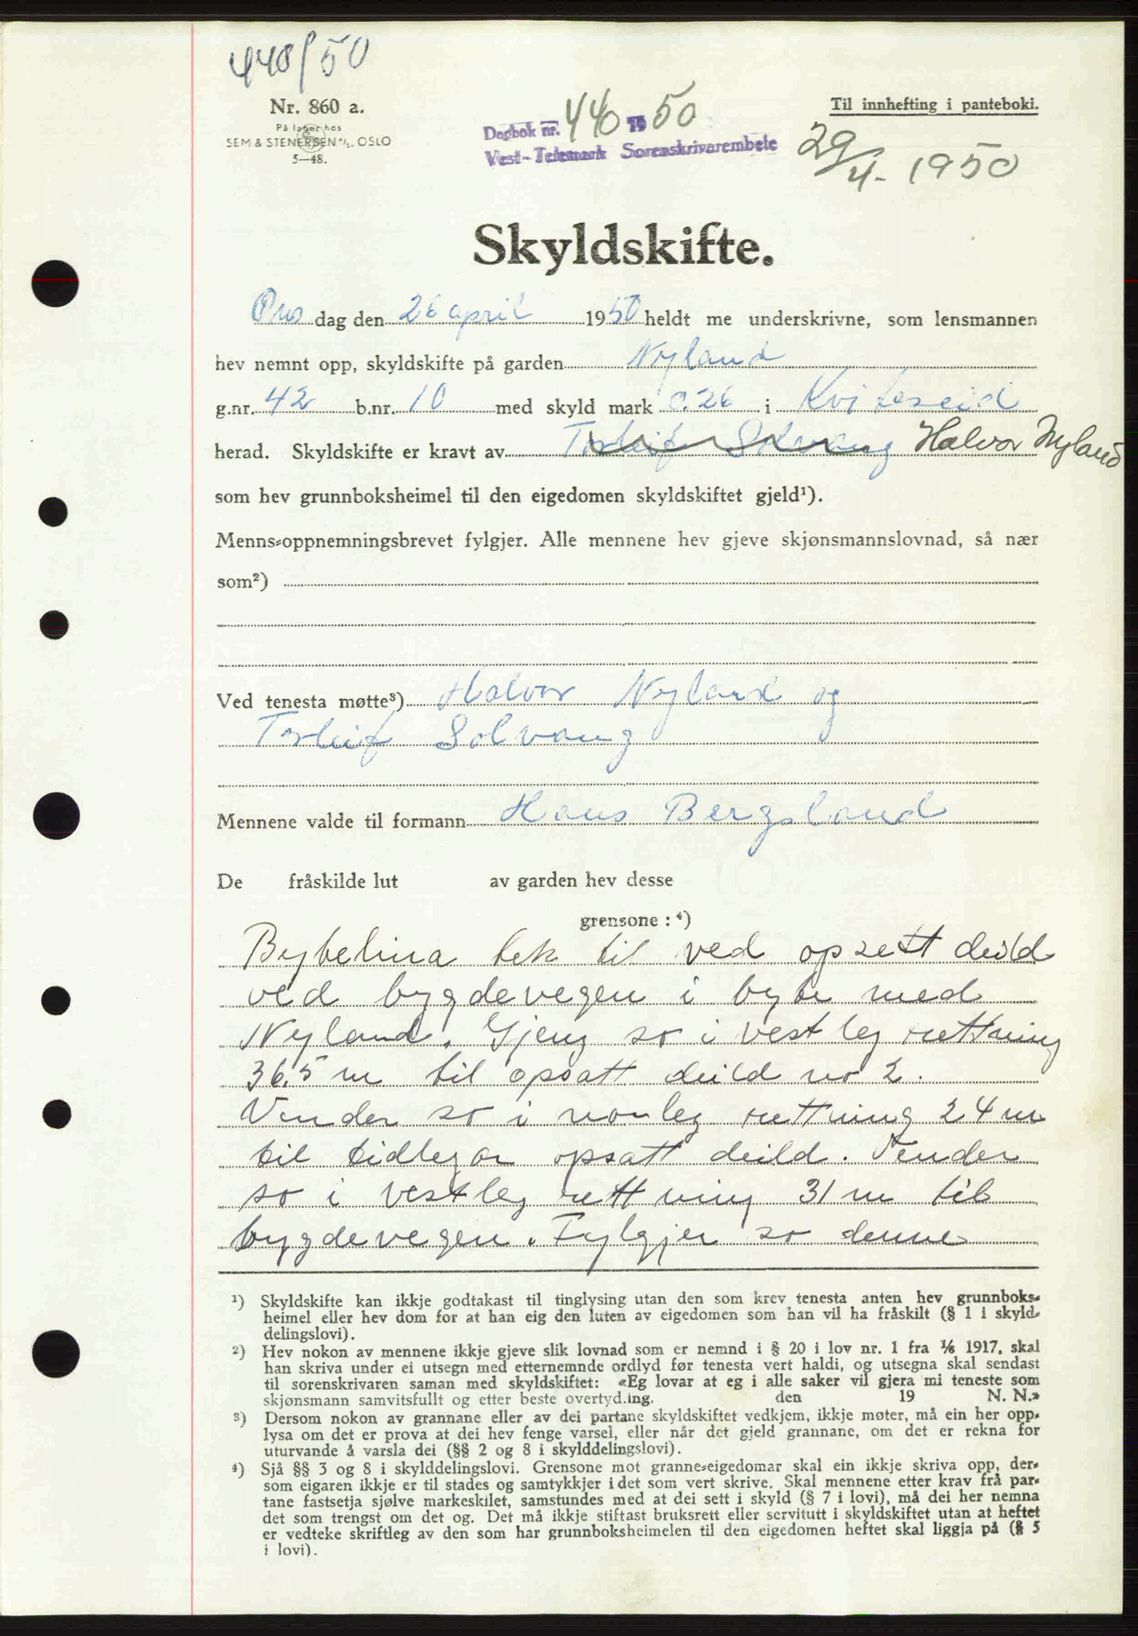 440/50
Nr. 860 a.
På lager hos
SEM & STENERSEN A/S. OSLO
5—48.
Dagbok nr. 440 19 50
Vest-Telemark Sorenskrivarembete
Til innhefting i panteboki.
29/4- 1950
Skyldskifte.
Ons dag den 26 april 1950 heldt me underskrivne, som lensmannen
hev nemnt opp, skyldskifte på garden Nyland
g.nr. 42 b.nr. 10 med skyld mark 0.26 i Kviteseid
herad. Skyldskifte er kravt av Torleif Solvang Halvor Nyland
som hev grunnboksheimel til den eigedomen skyldskiftet gjeld¹).
Menns-oppnemningsbrevet fylgjer. Alle mennene hev gjeve skjønsmannslovnad, så nær
som²)
Ved tenesta møtte³) Halvor Nyland og
Torleif Solvang
Mennene valde til formann Hans Bergsland
De fråskilde lut av garden hev desse
grensone : ⁴)
Bytelina tek til ved opsett deild
ved bygdevegen i byte med
Nyland. Gjeng so i vestleg rettning
36,5 m til opsatt deild no 2.
Vender so i norleg rettning 24 m
til tidlegar opsatt deild. Vender
so i vestleg rettning 31 m til
bygdevegen. Fylgjer so denne
¹) Skyldskifte kan ikkje godtakast til tinglysing utan den som krev tenesta anten hev grunnboks-
heimel eller hev dom for at han eig den luten av eigedomen som han vil ha fråskilt (§ 1 i skyld-
delingslovi).
²) Hev nokon av mennene ikkje gjeve slik lovnad som er nemnd i § 20 i lov nr. 1 fra 1/6 1917, skal
han skriva under ei utsegn med etternemnde ordlyd før tenesta vert haldi, og utsegna skal sendast
til sorenskrivaren saman med skyldskiftet: «Eg lovar at eg i alle saker vil gjera mi teneste som
skjønsmann samvitsfullt og etter beste overtyd.ing. den 19 N. N.»
³) Dersom nokon av grannane eller av dei partane skyldskiftet vedkjem, ikkje møter, må ein her opp-
lysa om det er prova at dei hev fenge varsel, eller når det gjeld grannane, om det er rekna for
uturvande å varsla dei (§§ 2 og 8 i skylddelingslovi).
⁴) Sjå §§ 3 og 8 i skylddelingslovi. Grensone mot granne-eigedomar skal ein ikkje skriva opp, der-
som eigaren ikkje er til stades og samtykkjer i det som vert skrive. Skal mennene etter krav frå par-
tane fastsetja sjølve markeskilet, samstundes med at dei sett i skyld (§ 7 i lovi), må dei her nemna
det som trengst om det og. Det må ikkje stiftast bruksrett eller servitutt i skyldskiftet utan at heftet
er vedteke skriftleg av den som har grunnboksheimelen til den eigedomen heftet skal liggja på (§ 5
i lovi).